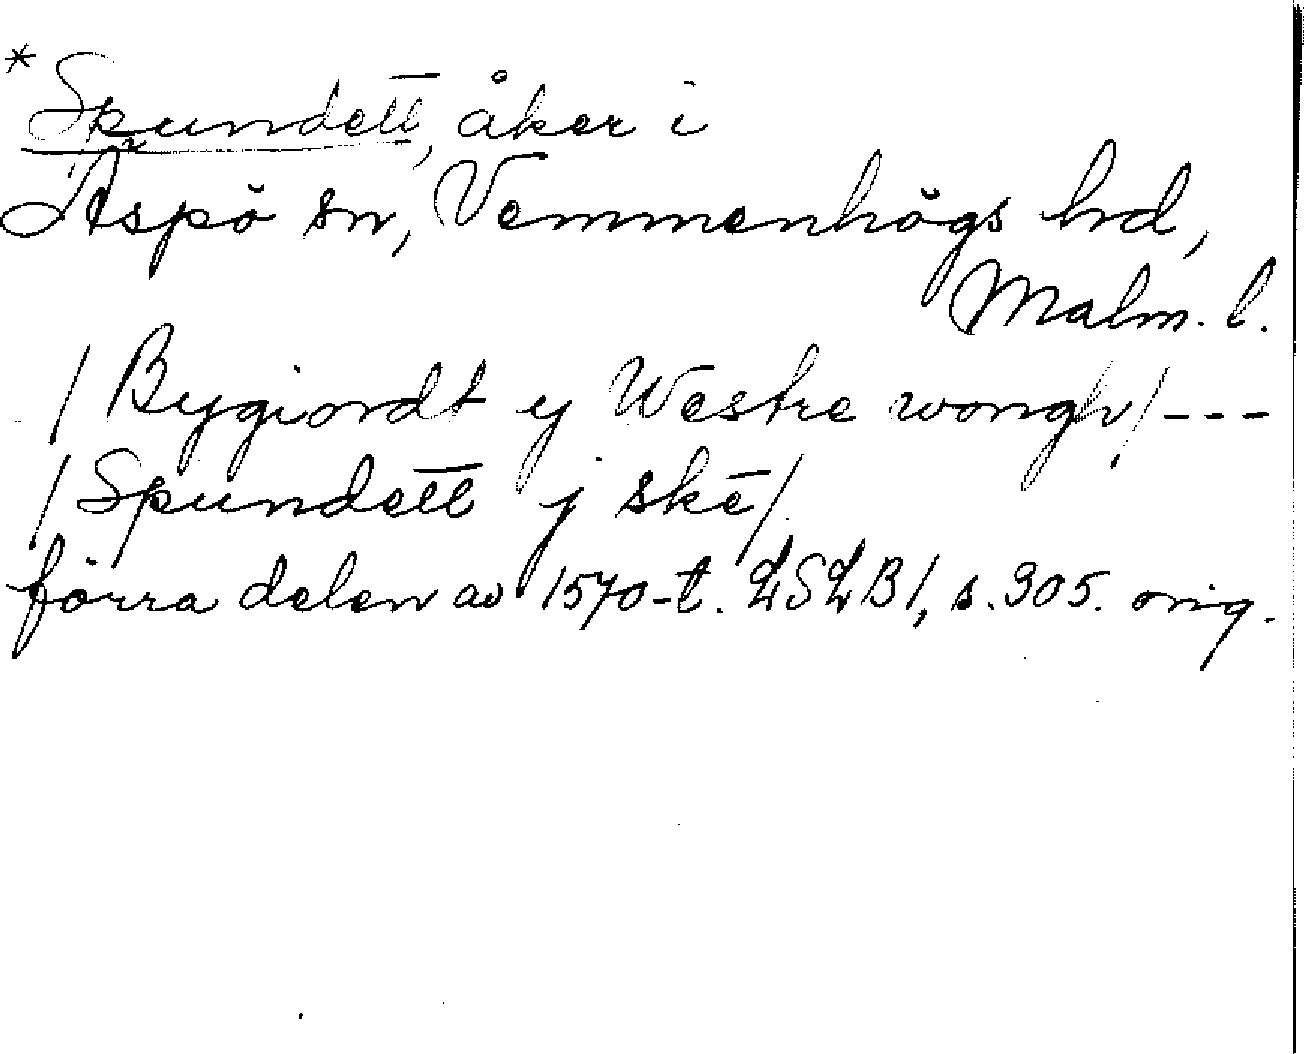 *Spundett, åker i
Äspö sn, Vemmenhögs hd,
Malm. l.
/ Bygiordt y Westre wongh/ ---
/ Spundett j skē/
förra delen av 1570-t. LSLB1, s. 305. orig.